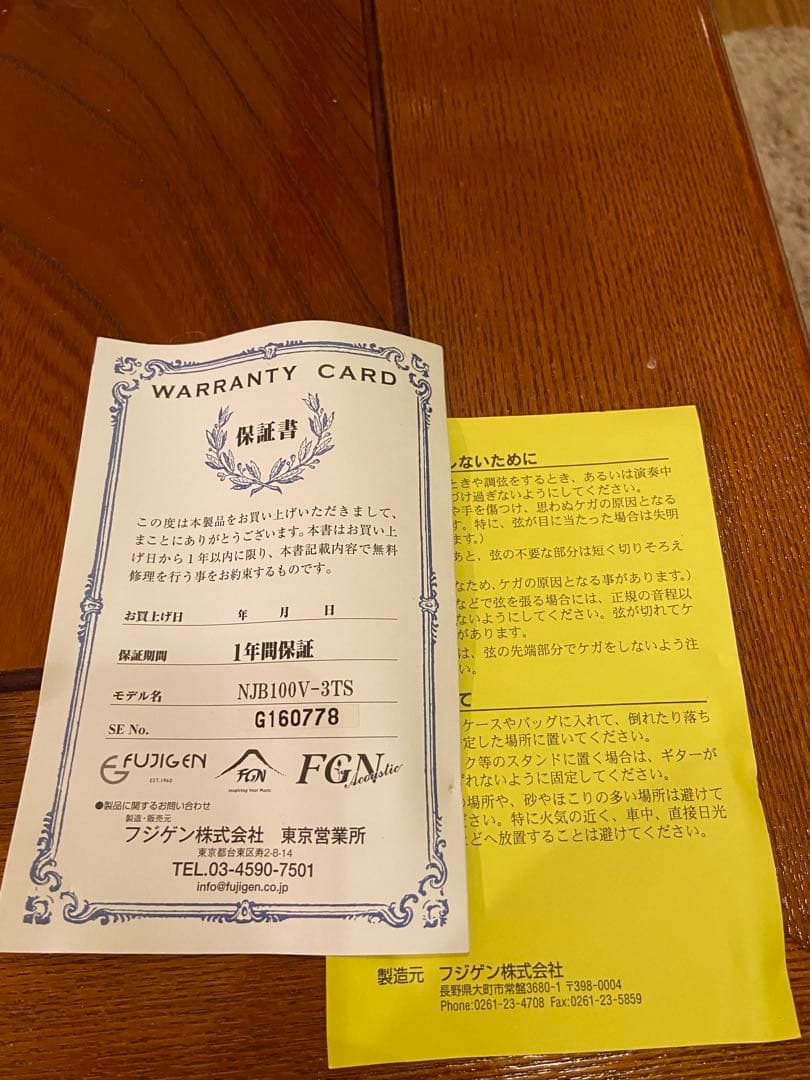 WARRANTY CARD
保証書
この度は本製品をお買い上げいただきまして、
まことにありがとうございます。本書はお買い上
げ日から1年以内に限り、本書記載内容で無料
修理を行う事をお約束するものです。
お買上げ日 年 月 日
保証期間 1年間保証
モデル名 NJB100V-3TS
SE No. G160778
FUJIGEN
EST.1960
FGN
Inspiring Your Music
FGN Acoustic
●製品に関するお問い合わせ
製造・販売元
フジゲン株式会社 東京営業所
東京都台東区寿2-8-14
TEL.03-4590-7501
info@fujigen.co.jp
しないために
ときや調弦をするとき、あるいは演奏中
づけ過ぎないようにしてください。
や手を傷つけ、思わぬケガの原因となる
す。特に、弦が目に当たった場合は失明
ます。）
あと、弦の不要な部分は短く切りそろえ
なため、ケガの原因となる事があります。）
などで弦を張る場合には、正規の音程以
ないようにしてください。弦が切れてケ
があります。
は、弦の先端部分でケガをしないよう注
い。
て
ケースやバッグに入れて、倒れたり落ち
定した場所に置いてください。
ク等のスタンドに置く場合は、ギターが
ずれないように固定してください。
の場所や、砂やほこりの多い場所は避けて
ださい。特に火気の近く、車中、直接日光
どへ放置することは避けてください。
製造元 フジゲン株式会社
長野県大町市常盤3680-1 〒398-0004
Phone:0261-23-4708 Fax:0261-23-5859